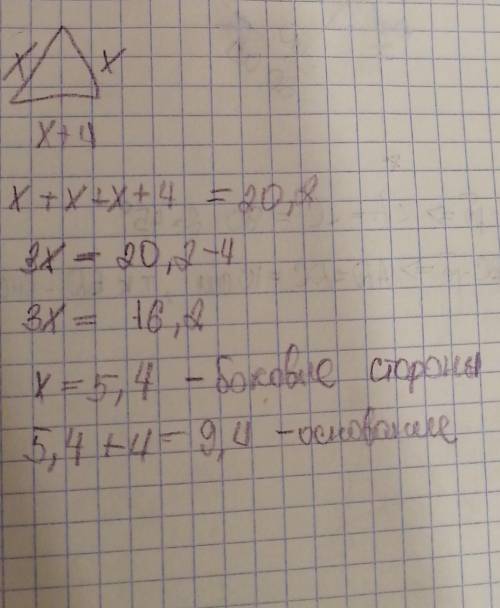 x x
x+4
x+x+x+4 = 20,2
3x = 20,2-4
3x = 16,2
x = 5,4 - боковые стороны
5,4+4=9,4 - основание